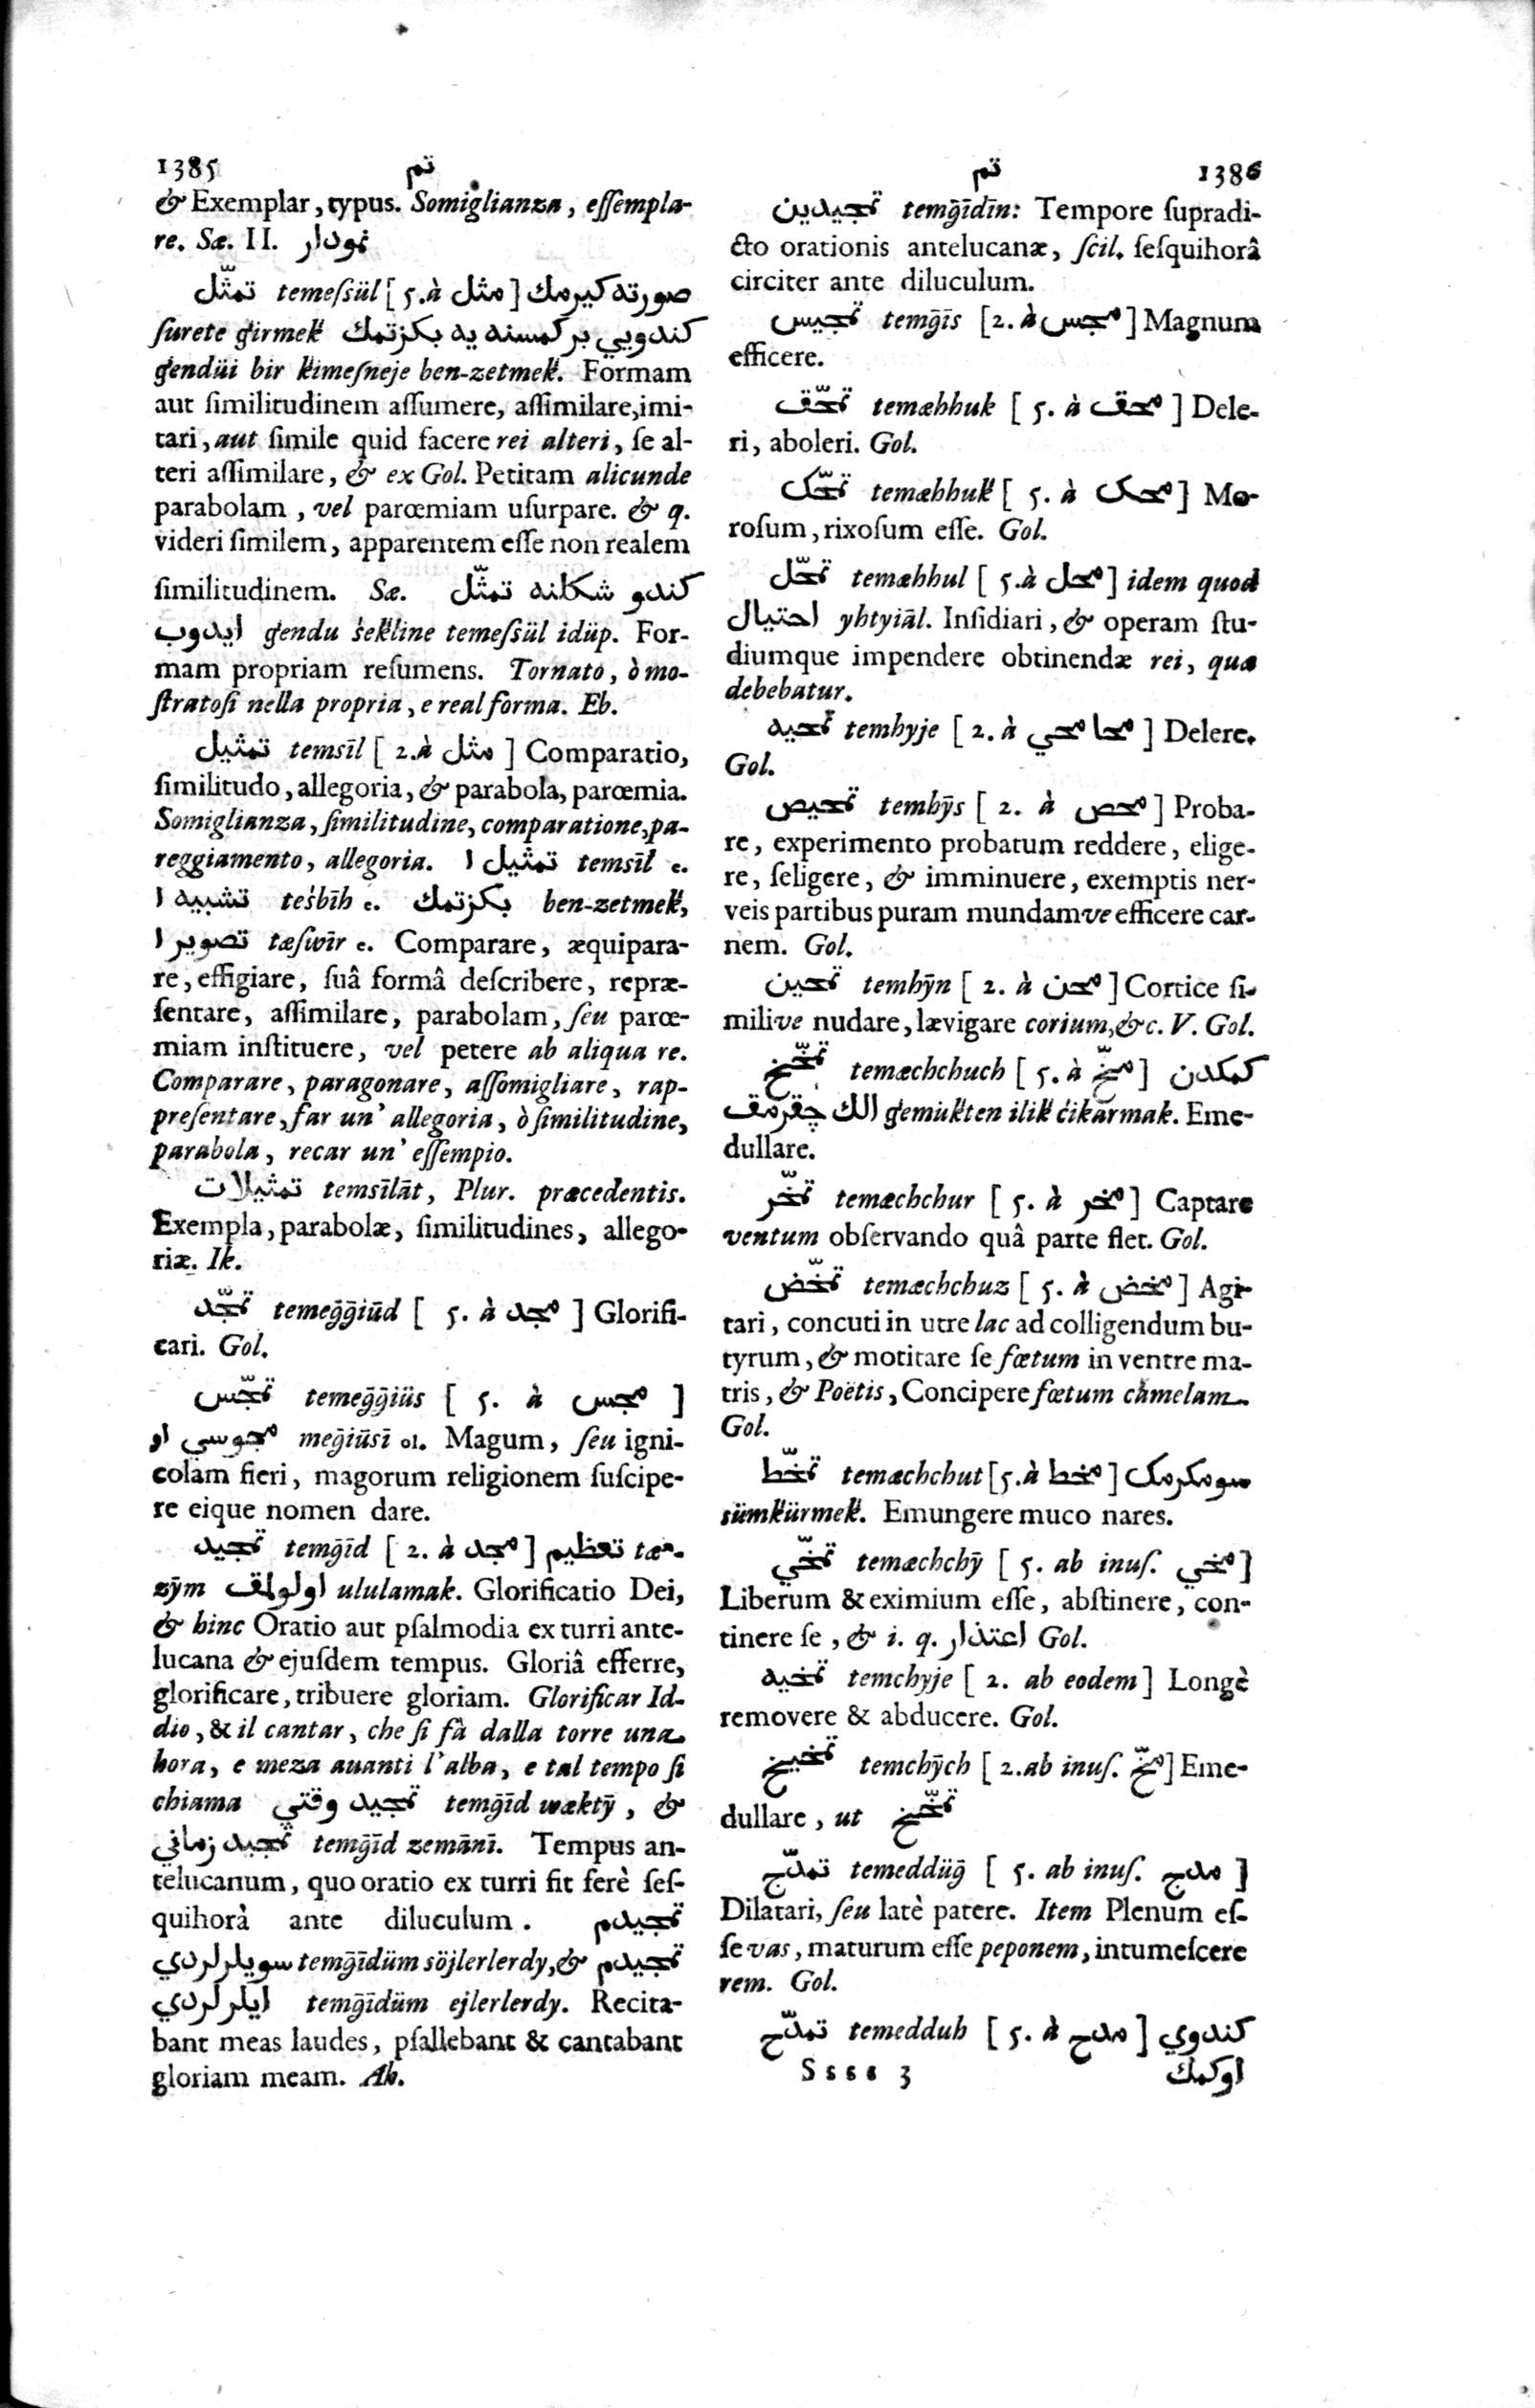 1385 تم
& Exemplar, typus. Somiglianza, eſſempla-
re. Sæ. II. نمودار
تمثّل temeſsül [ 5. à مثل ] صورته كيرمك
ſurete girmek كندويي بر كمسنه يه بكزتمك
gendüi bir kimeſneje ben-zetmek. Formam
aut ſimilitudinem aſſumere, aſſimilare, imi-
tari, aut ſimile quid facere rei alteri, ſe al-
teri aſſimilare, & ex Gol. Petitam alicunde
parabolam, vel parœmiam uſurpare. & q.
videri ſimilem, apparentem eſſe non realem
ſimilitudinem. Sæ. كندو شكلنه تمثّل
ايدوب gendu šekline temeſsül idüp. For-
mam propriam reſumens. Tornato, ò mo-
ſtratoſi nella propria, e real forma. Eb.
تمثيل temsīl [ 2. à مثل ] Comparatio,
ſimilitudo, allegoria, & parabola, parœmia.
Somiglianza, ſimilitudine, comparatione, pa-
reggiamento, allegoria. تمثيل ا temsīl e.
تشبيه ا tešbīh e. بكزتمك ben-zetmek,
تصوير ا tæſwīr e. Comparare, æquipara-
re, effigiare, ſuâ formâ deſcribere, repræ-
ſentare, aſſimilare, parabolam, ſeu parœ-
miam inſtituere, vel petere ab aliqua re.
Comparare, paragonare, aſſomigliare, rap-
preſentare, far un' allegoria, ò ſimilitudine,
parabola, recar un' eſſempio.
تمثيلات temsīlāt, Plur. præcedentis.
Exempla, parabolæ, ſimilitudines, allego-
riæ. Ik.
تمجّد temeḡḡiüd [ 5. à مجد ] Glorifi-
cari. Gol.
تمجّس temeḡḡiüs [ 5. à مجس ]
مجوسي او meḡiūsī ol. Magum, ſeu igni-
colam fieri, magorum religionem ſuſcipe-
re eique nomen dare.
تمجيد temḡīd [ 2. à مجد ] تعظيم tæ-
zȳm اولولمق ululamak. Glorificatio Dei,
& hinc Oratio aut pſalmodia ex turri ante-
lucana & ejuſdem tempus. Gloriâ efferre,
glorificare, tribuere gloriam. Glorificar Id-
dio, & il cantar, che ſi fà dalla torre una
hora, e meza auanti l'alba, e tal tempo ſi
chiama تمجيد وقتي temḡīd wæktȳ, &
تمجيد زماني temḡīd zemānī. Tempus an-
telucanum, quo oratio ex turri fit ferè ſeſ-
quihorà ante diluculum. تمجيدم
سويلرلردي temḡīdüm söjlerlerdy, & تمجيدم
ايلرلردي temḡīdüm ejlerlerdy. Recita-
bant meas laudes, pſallebant & cantabant
gloriam meam. Ah.
تم 1386
تمجيدين temḡīdīn: Tempore ſupradi-
cto orationis antelucanæ, ſcil. ſeſquihorâ
circiter ante diluculum.
تمجيس temḡīs [ 2. à مجس ] Magnum
efficere.
تمحّق temæhhuk [ 5. à محق ] Dele-
ri, aboleri. Gol.
تمحّك temæhhuk [ 5. à محك ] Mo-
roſum, rixoſum eſſe. Gol.
تمحّل temæhhul [ 5. à محل ] idem quod
احتيال yhtyiāl. Inſidiari, & operam ſtu-
diumque impendere obtinendæ rei, quæ
debebatur.
تمحيه temhyje [ 2. à محا محي ] Delere.
Gol.
تمحيص temhȳs [ 2. à محص ] Proba-
re, experimento probatum reddere, elige-
re, ſeligere, & imminuere, exemptis ner-
veis partibus puram mundamve efficere car-
nem. Gol.
تمحين temhȳn [ 2. à محن ] Cortice ſi-
milive nudare, lævigare corium, &c. V. Gol.
تمخّخ temæchchuch [ 5. à مخّ ] كمكدن
الك چقرمق gemükten ilik čikarmak. Eme-
dullare.
تمخّر temæchchur [ 5. à مخر ] Captare
ventum obſervando quâ parte flet. Gol.
تمخّض temæchchuz [ 5. à مخض ] Agi-
tari, concuti in utre lac ad colligendum bu-
tyrum, & motitare ſe fœtum in ventre ma-
tris, & Poëtis, Concipere fœtum camelam.
Gol.
تمخّط temæchchut [ 5. à مخط ] سومكرمك
sümkürmek. Emungere muco nares.
تمخّي temæchchȳ [ 5. ab inuſ. مخي ]
Liberum & eximium eſſe, abſtinere, con-
tinere ſe, & i. q. اعتذار Gol.
تمخيه temchyje [ 2. ab eodem ] Longè
removere & abducere. Gol.
تمخيخ temchȳch [ 2. ab inuſ. مخّ ] Eme-
dullare, ut تمخّخ
تمدّج temeddüḡ [ 5. ab inuſ. مدج ]
Dilatari, ſeu latè patere. Item Plenum eſ-
ſe vas, maturum eſſe peponem, intumeſcere
rem. Gol.
تمدّح temedduh [ 5. à مدح ] كندوي
Ssss 3 اوكمك